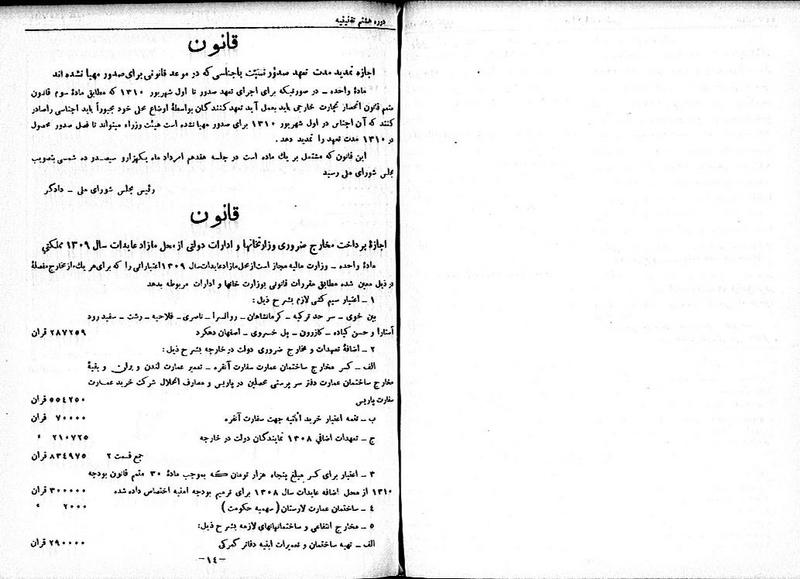 دوره هشتم تقنینیه
قانون
اجازه تمدید مدت تعهد صدور نسبت باجناسی که در موعد قانونی برای صدور مهیا نشده اند
مادۀ واحده – در صورتیکه برای اجرای تعهد صدور تا اول شهریور ۱۳۱۰ که مطابق مادۀ سوم قانون
متمم قانون انحصار تجارت خارجی باید بعمل آید تعهدکنندگان بواسطۀ اوضاع محلی خود مجبوراً باید اجناسی را صادر
کنند که آن اجناس در اول شهریور ۱۳۱۰ برای صدور مهیا نشده است هیئت وزراء میتواند تا فصل صدور محصول
در ۱۳۱۰ مدت تعهد را تمدید دهد .
این قانون که مشتمل بر یك ماده است در جلسه هفدهم امرداد ماه یکهزارو سیصدو ده شمسی بتصویب
مجلس شورای ملی رسید
رئیس مجلس شورای ملی – دادگر
قانون
اجازۀ پرداخت مخارج ضروری وزارتخانها و ادارات دولتی از محل مازاد عایدات سال ۱۳۰۹ مملکتی
مادۀ واحده – وزارت مالیه مجاز است از محل مازاد عایدات سال ۱۳۰۹ اعتباراتی را که برای هر یك از مخارج مفصلۀ
در ذیل معین شده مطابق مقررات قانونی بوزارت خانها و ادارات مربوطه بدهد
۱ – اعتبار سیم کشی لازم بشرح ذیل :
بین خوی – سر حد ترکیه – کرمانشاهان – روانسرا – ناصری – فلاحیه – رشت – سفید رود
آستارا و حسن کیاده – کازرون – پل خسروی – اصفهان دهکرد ۲۸۷۲۵۹ قران
۲ – اضافۀ تعهدات و مخارج ضروری دولت در خارجه بشرح ذیل :
الف – کسر مخارج ساختمان عمارت سفارت آنقره – تعمیر عمارت لندن و بران و بقیۀ
مخارج ساختمان عمارت دفتر سرپرستی محصلین در پاریس و مصارف انحلال شرکت خرید عمارت
سفارت پاریس ۵۵٤۲۵۰ قران
ب – تتمه اعتبار خرید اثاثیه جهت سفارت آنقره ۷۰۰۰۰ قران
ج – تعهدات اضافی ۱۳۰۸ نمایندگان دولت در خارجه ۲۱۰۷۲۵ »
جمع قسمت ۲ ۸۳٤۹۷۵ قران
۳ – اعتبار برای کسر مبلغ پنجاه هزار تومان که بموجب مادۀ ۳۰ متمم قانون بودجه
۱۳۱۰ از محل اضافه عایدات سال ۱۳۰۸ برای ترمیم بودجه امنیه اختصاص داده شده ۳۰۰۰۰۰ قران
٤ – ساختمان عمارت لارستان ( سهمیه حکومت ) ۲۰۰۰ »
۵ – مخارج انتفاعی و ساختمانهای لازمه بشرح ذیل :
الف – تهیه ساختمان و تعمیرات ابنیه دفاتر گمرکی ۲۹۰۰۰۰ قران
–۱٤–